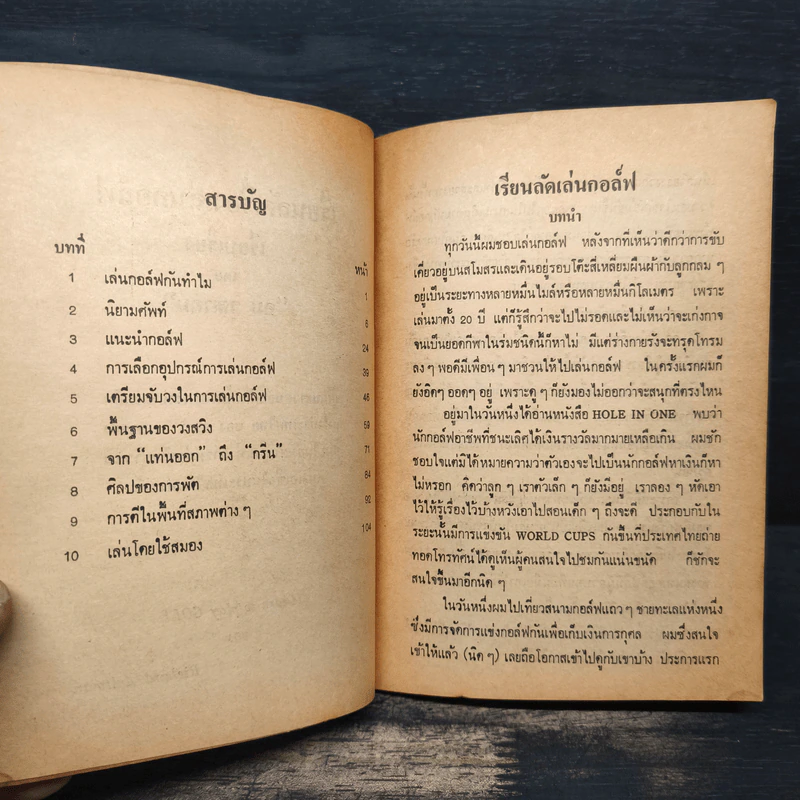 สารบัญ
บทที่ หน้า
1 เล่นกอล์ฟกันทำไม 1
2 นิยามศัพท์ 6
3 แนะนำกอล์ฟ 24
4 การเลือกอุปกรณ์การเล่นกอล์ฟ 39
5 เตรียมจับวงในการเล่นกอล์ฟ 46
6 พื้นฐานของวงสวิง 59
7 จาก "แท่นออก" ถึง "กรีน" 71
8 ศิลปของการพัต 84
9 การตีในพื้นที่สภาพต่าง ๆ 92
10 เล่นโดยใช้สมอง 104
เรียนลัดเล่นกอล์ฟ
บทนำ
ทุกวันนี้ผมชอบเล่นกอล์ฟ หลังจากที่เห็นว่าดีกว่าการขับ
เคี่ยวอยู่บนสโมสรและเดินอยู่รอบโต๊ะสี่เหลี่ยมผืนผ้ากับลูกกลม ๆ
อยู่เป็นระยะทางหลายหมื่นไมล์หรือหลายหมื่นกิโลเมตร เพราะ
เล่นมาตั้ง 20 ปี แต่ก็รู้สึกว่าจะไปไม่รอดและไม่เห็นว่าจะเก่งกาจ
จนเป็นยอดกีฬาในร่มชนิดนี้ก็หาไม่ มีแต่ร่างกายรังจะทรุดโทรม
ลง ๆ พอดีมีเพื่อน ๆ มาชวนให้ไปเล่นกอล์ฟ ในครั้งแรกผมก็
ยังอิด ๆ ออด ๆ อยู่ เพราะดู ๆ ก็ยังมองไม่ออกว่าจะสนุกที่ตรงไหน
อยู่มาในวันหนึ่งได้อ่านหนังสือ HOLE IN ONE พบว่า
นักกอล์ฟอาชีพที่ชนะเลิศได้เงินรางวัลมากมายเหลือเกิน ผมชัก
ชอบใจแต่มิได้หมายความว่าตัวเองจะไปเป็นนักกอล์ฟหาเงินก็หา
ไม่หรอก คิดว่าลูก ๆ เราตัวเล็ก ๆ ก็ยังมีอยู่ เราลอง ๆ หัดเอา
ไว้ให้รู้เรื่องไว้บ้างหวังเอาไปสอนเด็ก ๆ ถึงจะดี ประกอบกับใน
ระยะนั้นมีการแข่งขัน WORLD CUPS กันขึ้นที่ประเทศไทยถ่าย
ทอดโทรทัศน์ได้ดูเห็นผู้คนสนใจไปชมกันแน่นขนัด ก็ชักจะ
สนใจขึ้นมาอีกนิด ๆ
ในวันหนึ่งผมไปเที่ยวสนามกอล์ฟแถว ๆ ชายทะเลแห่งหนึ่ง
ซึ่งมีการจัดการแข่งกอล์ฟกันเพื่อเก็บเงินการกุศล ผมซึ่งสนใจ
เข้าให้แล้ว (นิด ๆ) เลยถือโอกาสเข้าไปดูกับเขาบ้าง ประการแรก